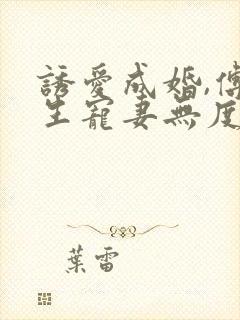 誘愛成婚,傅
生寵妻無度
葉雷